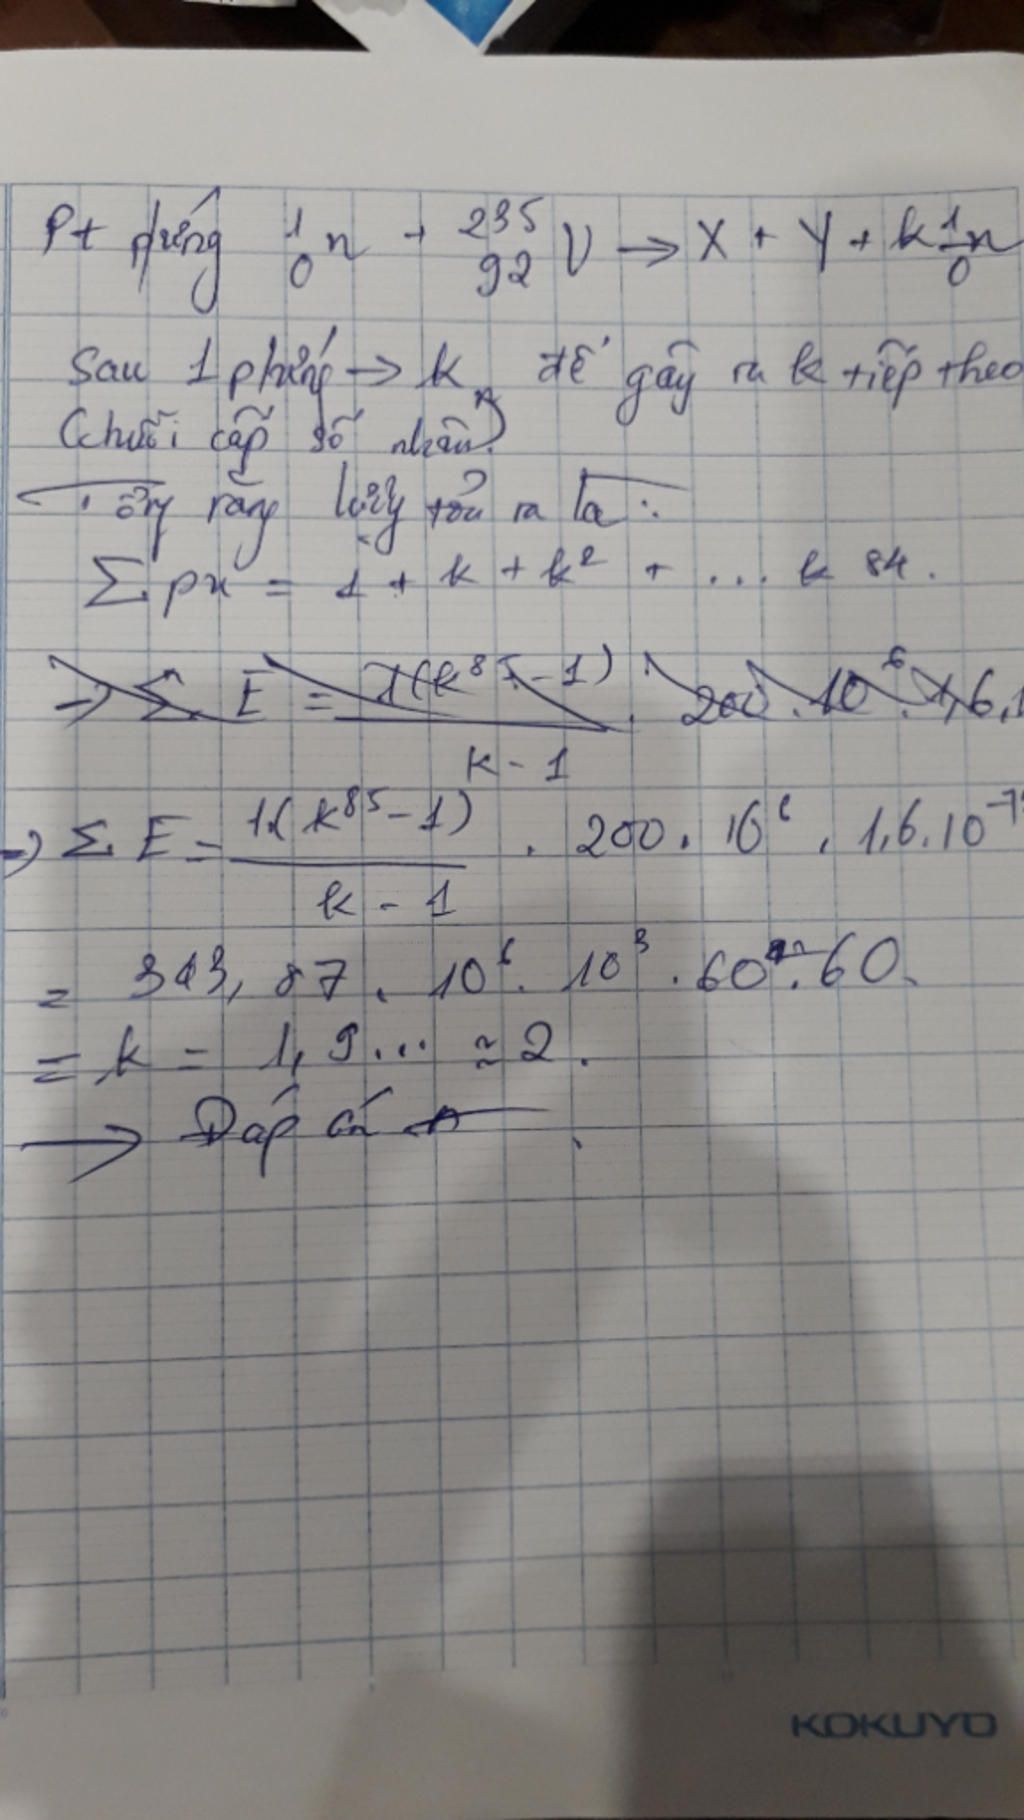 Pt phứng ¹₀n + ²³⁵₉₂U → X + Y + k¹₀n
Sau 1 phứng → k n để gây ra k tiếp theo
(chuỗi cấp số nhân)
Tổng năng lượng tỏa ra là:
Σ pư = 1 + k + k² + ... k 84.
→ Σ E = 1(k⁸⁵ - 1) / k - 1 . 200 . 10⁶ . 1,6.1
→ Σ E = 1.(k⁸⁵ - 1) / k - 1 . 200 . 10⁶ . 1,6.10⁻¹⁹
= 343,87 . 10⁶ . 10³ . 60 . 60.
= k = 1,9... ≈ 2.
→ Đáp án
KOKUYO